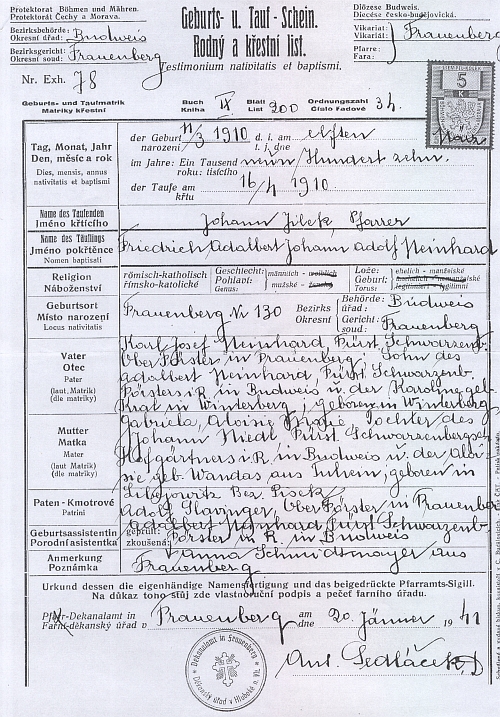 Protektorat Böhmen und Mähren.
Protektorát Čechy a Morava.
Bezirksbehörde:
Okresní úřad: Budweis
Bezirksgericht:
Okresní soud: Frauenberg
Nr. Exh. 78
Geburts- u. Tauf - Schein.
Rodný a křestní list.
Testimonium nativitatis et baptismi.
Diözese Budweis.
Diecése česko-budějovická.
Vikariat:
Vikariát: Frauenberg
Pfarre:
Fara:
5
K
Geburts- und Taufmatrik
Matriky křestní
Buch
Kniha IX
Blatt
List 200
Ordnungszahl
Číslo řadové 34.
Tag, Monat, Jahr
Den, měsíc a rok
Dies, mensis, annus
nativitatis et baptismi
der Geburt
narození 11/3 1910 d. i. am
t. j. dne elften März
im Jahre: Ein Tausend
roku: tisícího neun Hundert zehn
der Taufe am
křtu 16/4 1910
Name des Taufenden
Jméno křtícího
Johann Jilek, Pfarrer
Name des Täuflings
Jméno pokřtěnce
Nomen baptisati
Friedrich Adalbert Johann Adolf Neinhard
Religion
Náboženství
römisch-katholisch
římsko-katolické
Geschlecht:
Pohlaví:
Genus:
männlich - weiblich
mužské - ženský
Lože:
Torus:
ehelich - manželské
legitimní
Geburtsort
Místo narození
Locus nativitatis
Frauenberg Nr 130
Bezirks
Okresní
Behörde:
úřad: Budweis
Gericht:
soud: Frauenberg
Vater
Otec
Pater
(laut Matrik)
(dle matriky)
Karl Josef Neinhard, Fürst Schwarzenb.
Oberförster in Frauenberg, Sohn des
Adalbert Neinhard, Fürst Schwarzenb.
Försters i R. in Budweis u. der Karoline geb.
Král in Winterberg, geboren in Winterberg
Mutter
Matka
Mater
(laut Matrik)
(dle matriky)
Gabriela, Aloisie Tochter des
Johann Niedl Fürst Schwarzenbergschen
Hofgärtners i R. in Budweis u. der Aloi-
sie geb. Wandas aus geboren in
Bez. Pisek
Paten - Kmotrové
Patrini
Adolf Oberförster in Frauenberg
Adalbert Neinhard, Fürst Schwarzenb.
Förster in R. in Budweis
Geburtsassistentin
Porodní asistentka
geprüft:
zkoušená:
Anna Schmidtmayer aus
Frauenberg
Anmerkung
Poznámka
Urkund dessen die eigenhändige Namensfertigung und das beigedrückte Pfarramts-Sigill.
Na důkaz toho stůj zde vlastnoruční podpis a pečeť farního úřadu.
Pfarr-Dekanalamt in
Farní-děkanský úřad v Frauenberg am
dne 20. Jänner 1941
Ant. Sedláček
Dekanalamt in Frauenberg
Děkanský úřad v Hluboké n. Vlt.